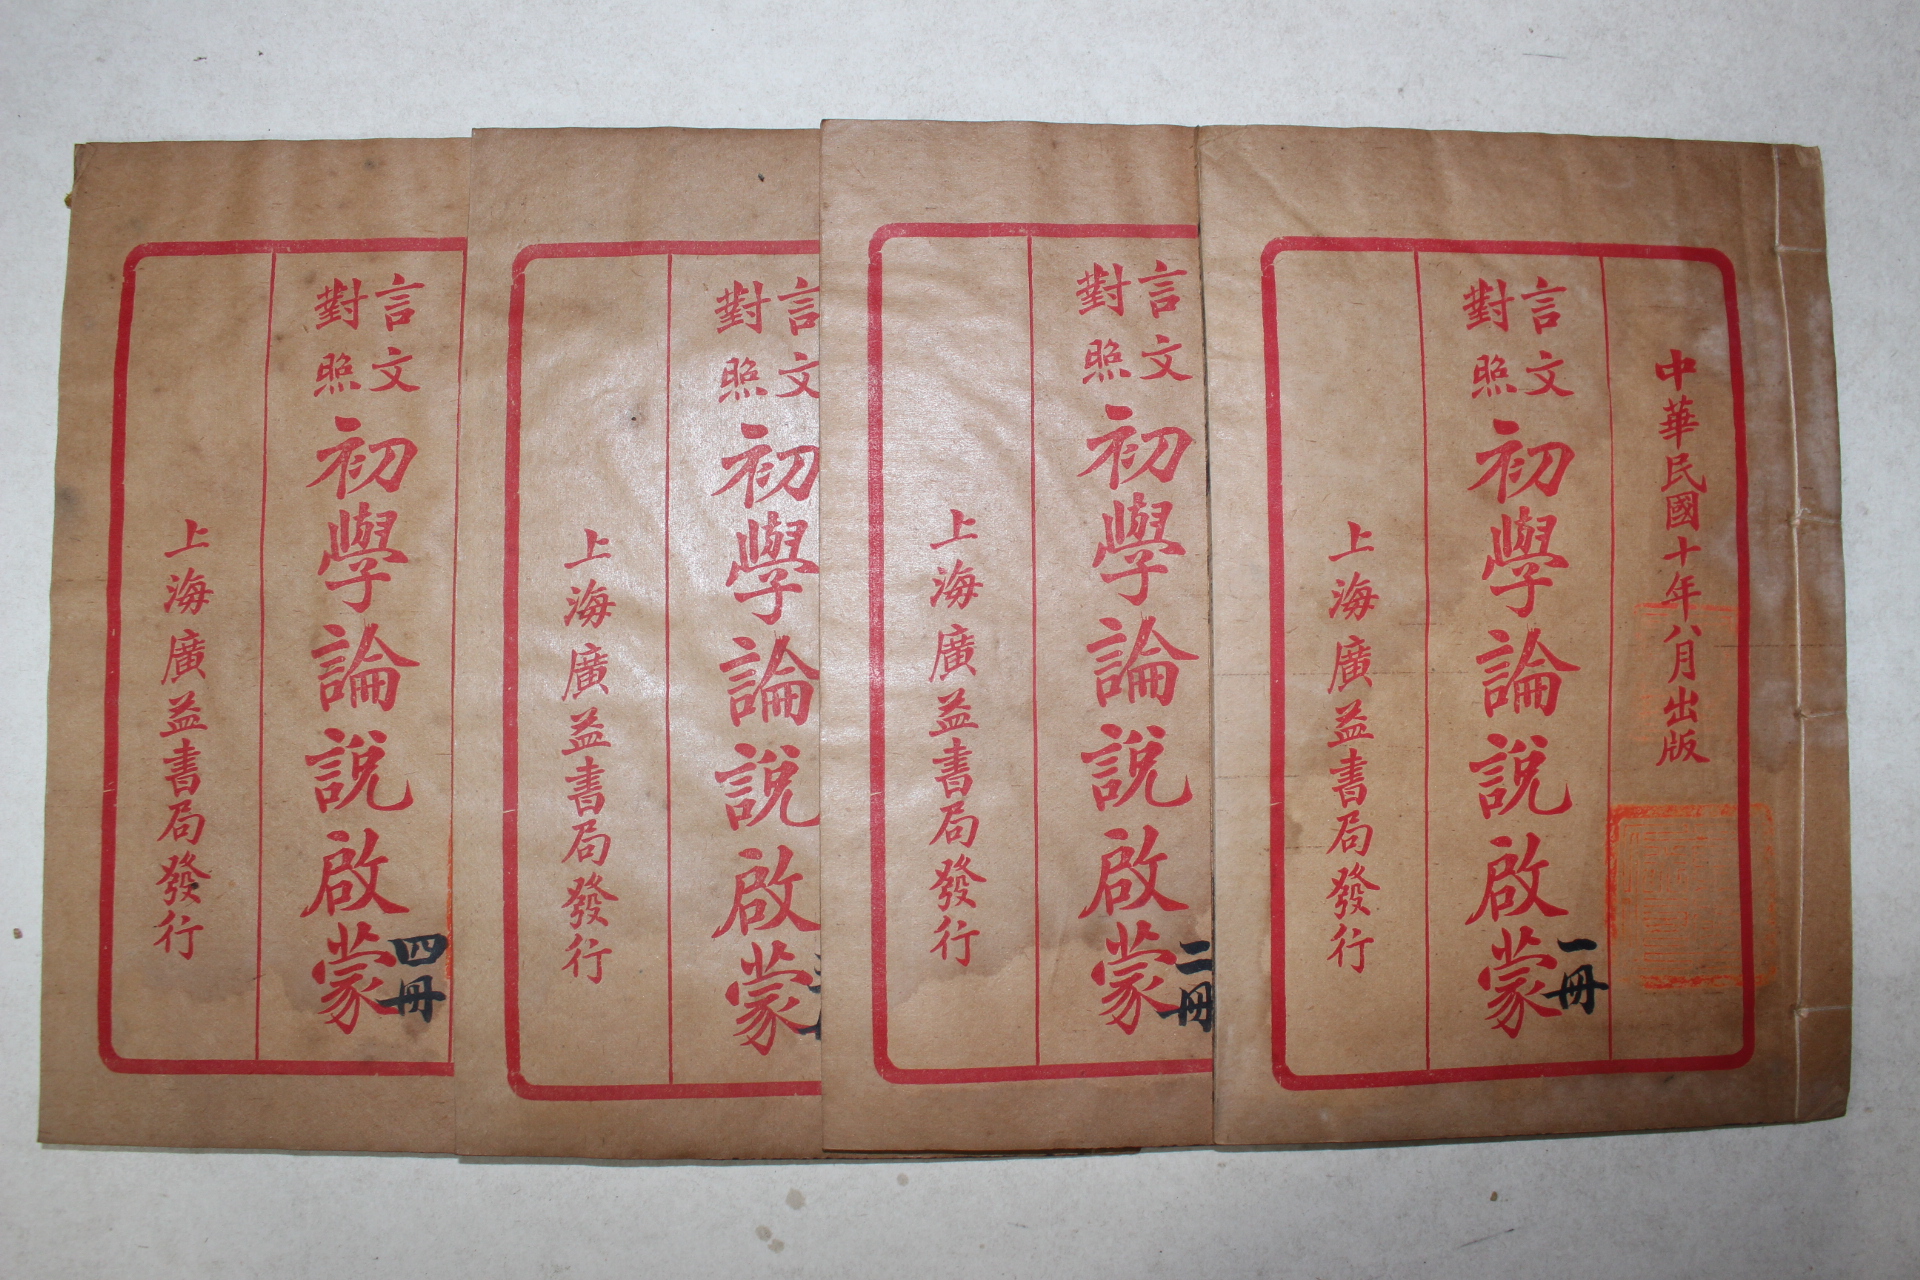 中華民國十年八月出版
言文
對照
初學論說啟蒙
一冊
上海廣益書局發行
言文
對照
初學論說啟蒙
二冊
上海廣益書局發行
言文
對照
初學論說啟蒙
上海廣益書局發行
言文
對照
初學論說啟蒙
四冊
上海廣益書局發行